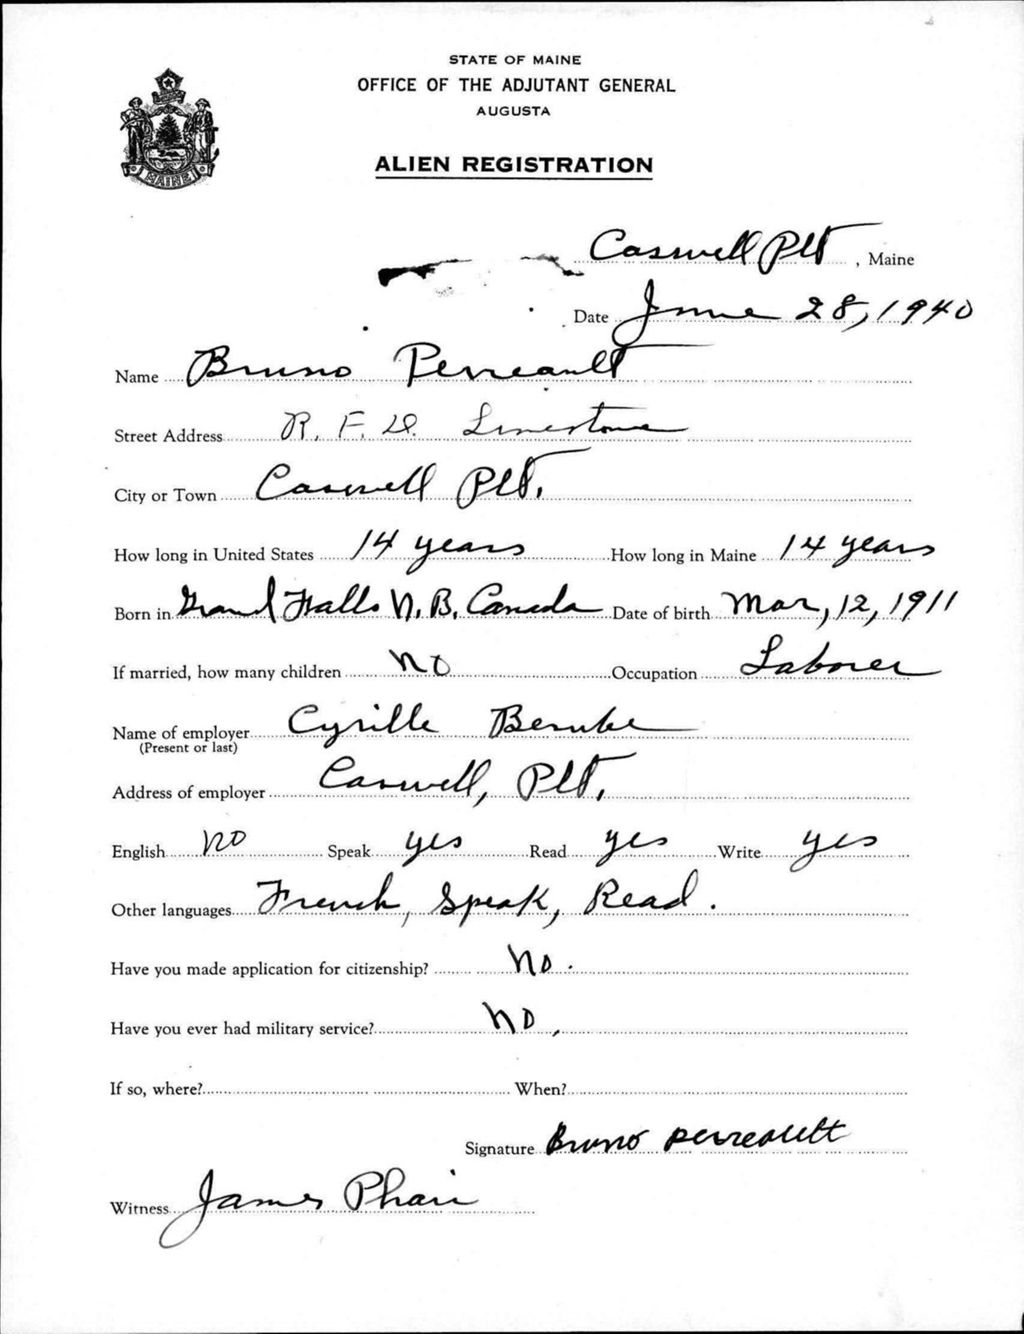 STATE OF MAINE
OFFICE OF THE ADJUTANT GENERAL
AUGUSTA
ALIEN REGISTRATION
MAINE
Caswell Plt, Maine
Date June 28, 1940
Name Bruno Perreault
Street Address R. F. D. Limestone
City or Town Caswell Plt.
How long in United States 14 years How long in Maine 14 years
Born in Grand Falls N. B. Canada Date of birth Mar, 12, 1911
If married, how many children No Occupation Laborer
Name of employer Cyrille Berube
(Present or last)
Address of employer Caswell, Plt.
English no Speak yes Read yes Write yes
Other languages French, Speak, Read.
Have you made application for citizenship? No.
Have you ever had military service? No.
If so, where? When?
Signature Bruno perreault
Witness James Phair